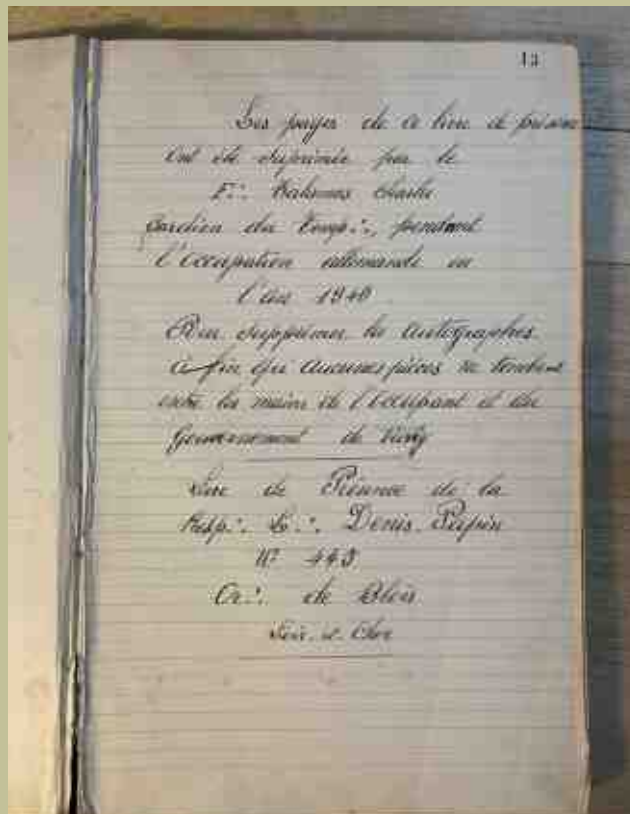 13
Les pages de ce livre de présence
Ont été suprimée par le
F∴ Charles
Gardien du Temp∴, pendant
l'Occupation allemande en
l'an 1940.
Pour supprimer les autographes
a fin qu'aucunes pièces ne tombent
entre les mains de l'occupant et du
Gouvernement de Vichy
Livre de Présence de la
Resp∴ L∴ Denis Papin
N° 443
Or∴ de Blois
Loir-et-Cher